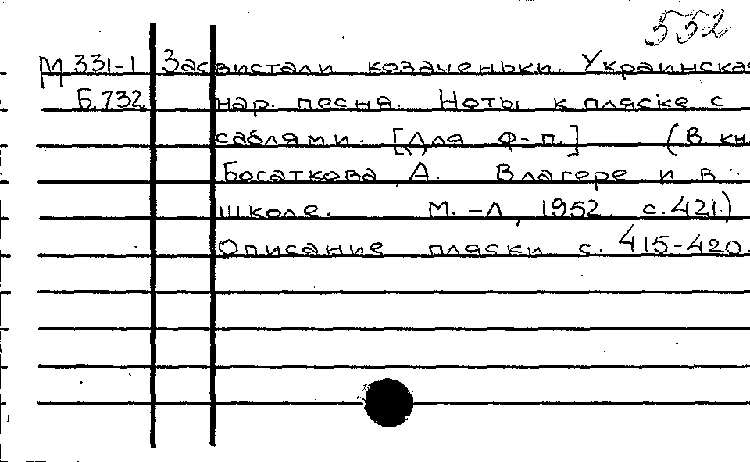 552
М 331-1 Засвистали козаченьки. Украинская
Б.732 нар. песня. Ноты к пляске с
саблями. [Для ф-п.] (В кн.
Босаткова А. В лагере и в
школе. М.-Л, 1952. с.421.)
Описание пляски с. 415-420.